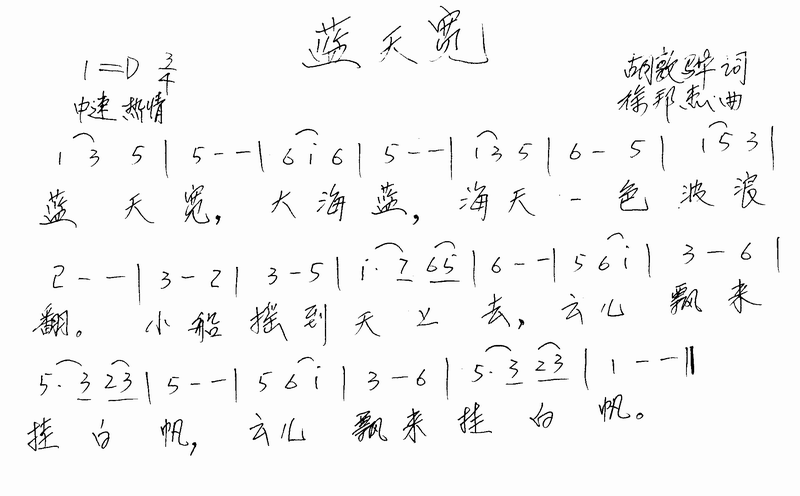 蓝天宽
1=D 3/4
胡敦骅词
中速 热情
徐邦杰曲
1 3 5 | 5 - - | 6 i 6 | 5 - - | i 3 5 | 6 - 5 | i 5 3 |
蓝 天 宽, 大 海 蓝, 海 天 一 色 波 浪
2 - - | 3 - 2 | 3 - 5 | i· 7 6 5 | 6 - - | 5 6 i | 3 - 6 |
翻。 小 船 摇 到 天 上 去, 云 儿 飘 来
5· 3 2 3 | 5 - - | 5 6 i | 3 - 6 | 5· 3 2 3 | 1 - - ‖
挂 白 帆, 云 儿 飘 来 挂 白 帆。